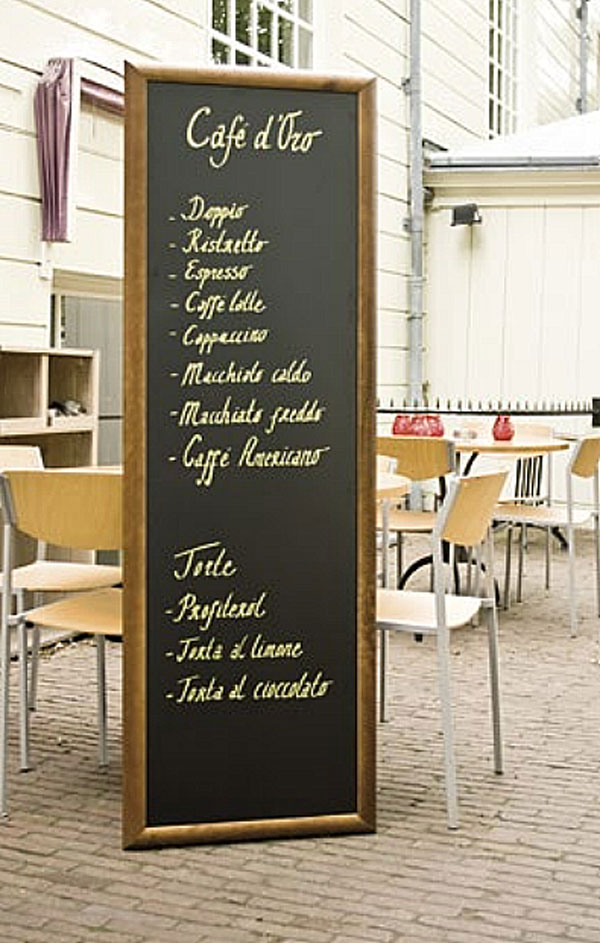 Café d'Oro
- Doppio
- Ristretto
- Espresso
- Caffe latte
- Cappuccino
- Macchiato caldo
- Macchiato freddo
- Caffé Americano
Torte
- Profiterol
- Torta al limone
- Torta al cioccolato